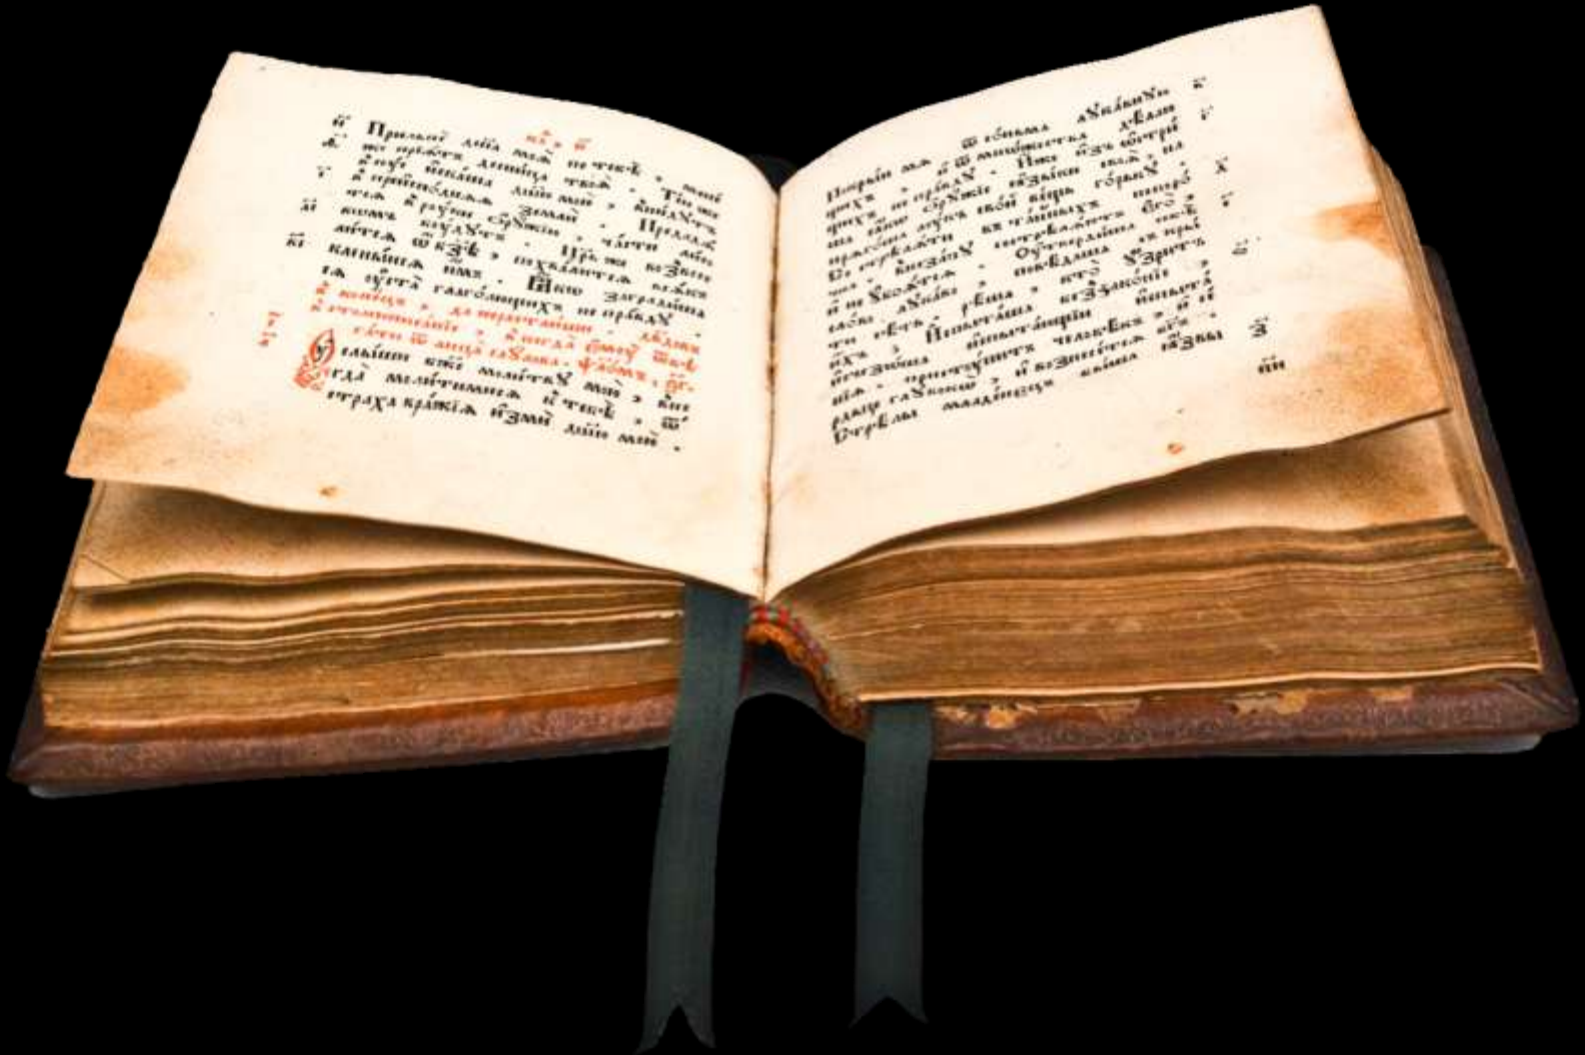 Прильпѐ дш҃а моѧ̀ по тебѣ̀ , менѐ
же прїѧ́тъ десни́ца твоѧ̀ . Ті́и же
в̾сꙋ́е иска́ша дш҃ю мою̀ , вни́дꙋтъ
в̾ преиспо́днѧѧ земли̑ . Предадѧ́
тсѧ в̾ рꙋки ѻрꙋ́жїю , ча́сти ли́со
вомъ бꙋдꙋтъ . Цр҃ь же возвесе
ли́тсѧ ѡ бз҃ѣ , похва́литсѧ всѧ́къ
клены́йсѧ имъ . Ꙗ҆́кѡ загради́ша
сѧ ᲂу҆ста̀ глаго́лющихъ непра́вдꙋ .
в̾ коне́цъ , дв҃дова
внегда̀ емꙋ̀
ѿ лица̀ саꙋла . ѱало́мъ ,
Оу҆слы́ши бж҃е моли́твꙋ мою̀ , вне
гда̀ моли́тимисѧ к̾ тебѣ̀ , ѿ
страха вра́жїѧ измѝ дш҃ю мою̀ .
Покры́й мѧ ѿ со́ньма лꙋка́внꙋю
щихъ , и ѿ мно́жества дѣ́лаю
щихъ непра́вдꙋ . И҆́же изъѡстри́
ша ꙗ҆́кѡ ѻрꙋ́жїе ꙗзы́ки своѧ̀ , на
прѧго́ша лꙋ́къ сво́й ве́щь го́рькꙋ .
Состре́лѧти в та́йныхъ непоро́
чна , внеза́пꙋ состре́лѧютъ его̀ ,
и не ꙋбоѧ́тсѧ . Оу҆тверди́ша себѣ̀
сло́во лꙋка́во , повѣ́даша скры́
ти сѣ́ть , рѣ́ша , кто̀ ꙋ҆́зритъ
и҆́хъ , И҆спыта́ша беззако́нїе ,
изчезо́ша испыта́ющїи испыта́
нїѧ , пристꙋ́питъ человѣ́къ , и се́
рдце глꙋбоко̀ , и вознесе́тсѧ бг҃ъ .
Стрѣ́лы младе́нецъ бы́ша ꙗ҆́звы